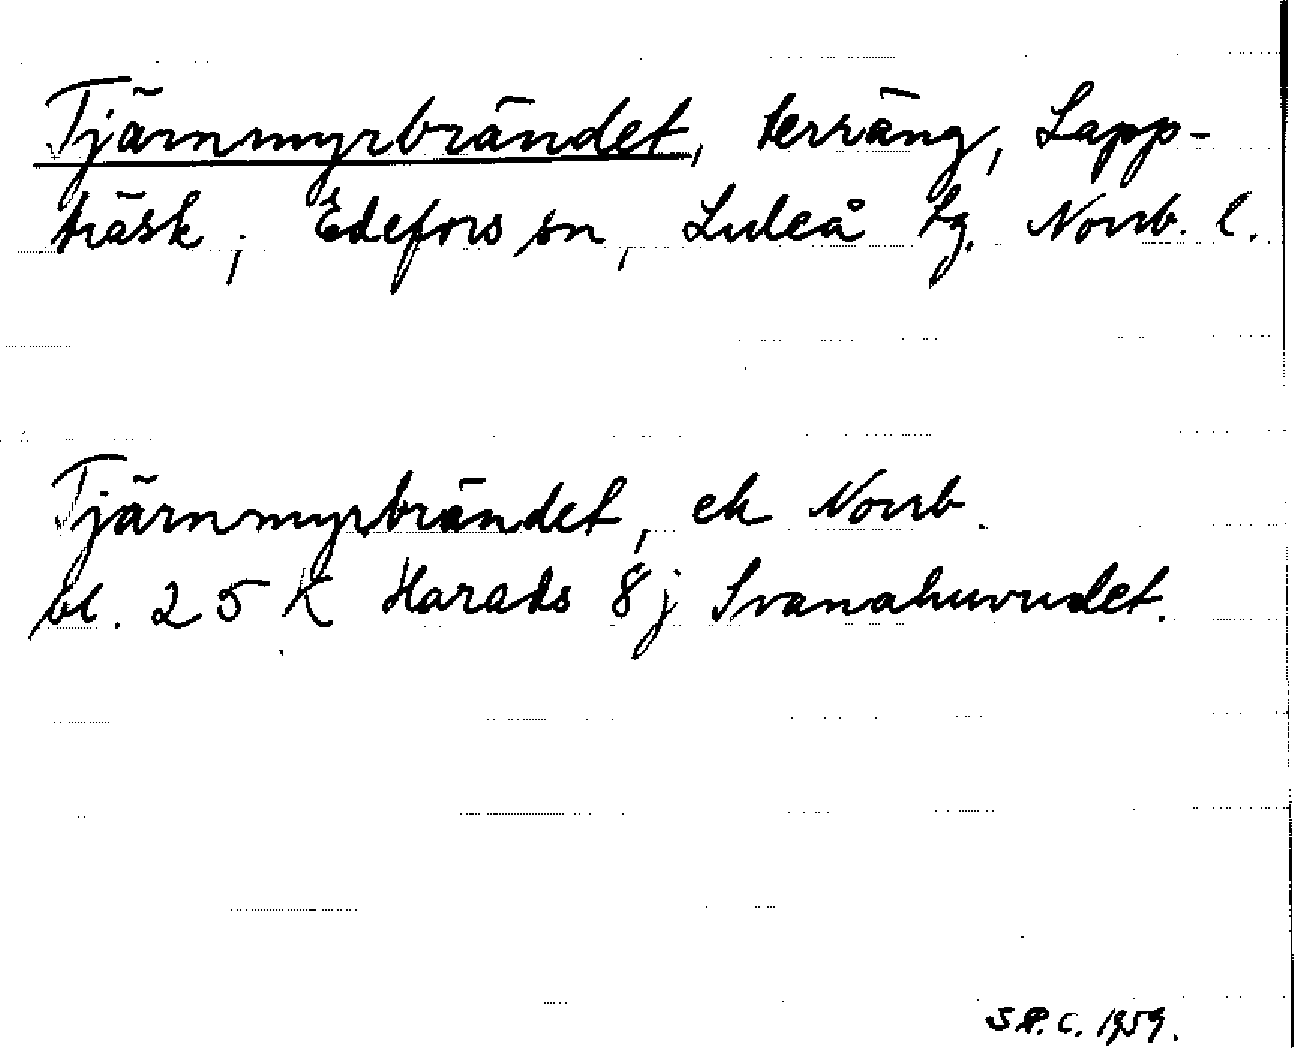 Tjärnmyrbrändet, terräng, Lapp-
träsk, Edefors sn, Luleå tg. Norrb. l.
Tjärnmyrbrändet, ek Norrb.
bl. 25 K Harads 8j Svanahuvudet.
S.P.C. 1959.